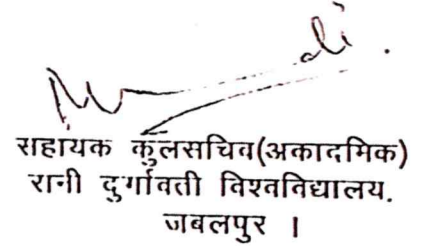 सहायक कुलसचिव(अकादमिक)
रानी दुर्गावती विश्वविद्यालय.
जबलपुर ।